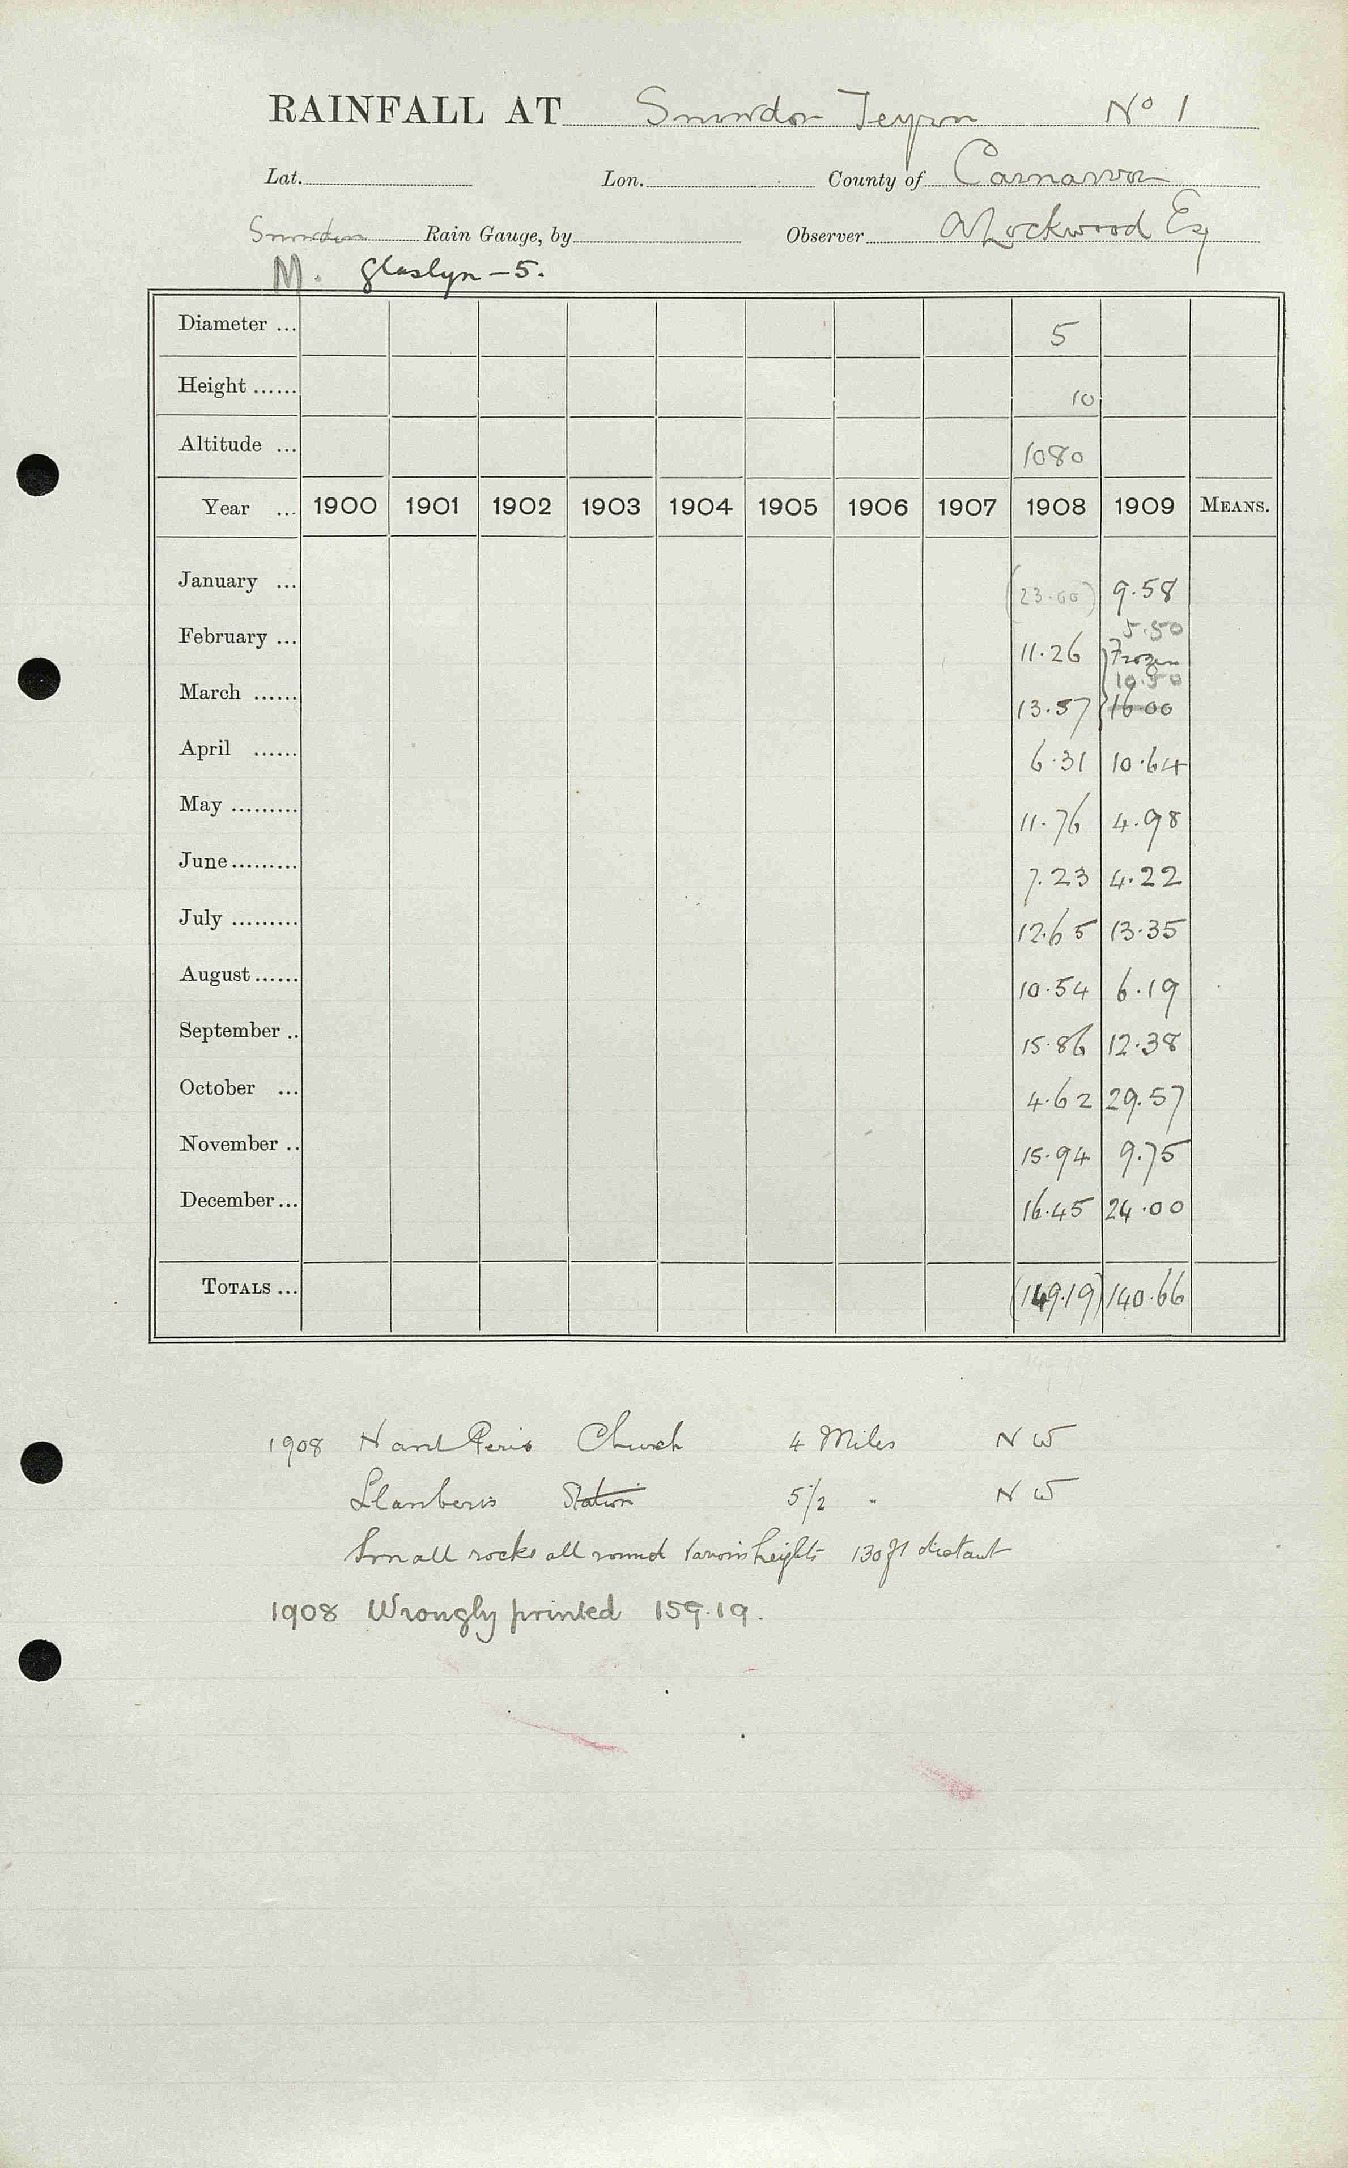 RAINFALL AT Snowdon Teyrn No 1
Lat. Lon. County of Carnarvon
Snowdon Rain Gauge, by Observer A Lockwood Esq
M. Glaslyn – 5.
Diameter ... 5
Height ...... 10
Altitude ... 1080
Year ... 1900 1901 1902 1903 1904 1905 1906 1907 1908 1909 MEANS.
January ... (23.00) 9.58
5.50
February ... 11.26 Frozen
10.50
March ...... 13.57 16.00
April ...... 6.31 10.64
May ......... 11.76 4.98
June ......... 7.23 4.22
July ......... 12.65 13.35
August ...... 10.54 6.19
September .. 15.86 12.38
October ... 4.62 29.57
November .. 15.94 9.75
December ... 16.45 24.00
TOTALS ... (149.19) 140.66
1908 Nant Peris Church 4 Miles NW
Llanberis Station 5 1/2 " NW
Small rocks all round various heights 130 ft distant
1908 Wrongly printed 159.19.